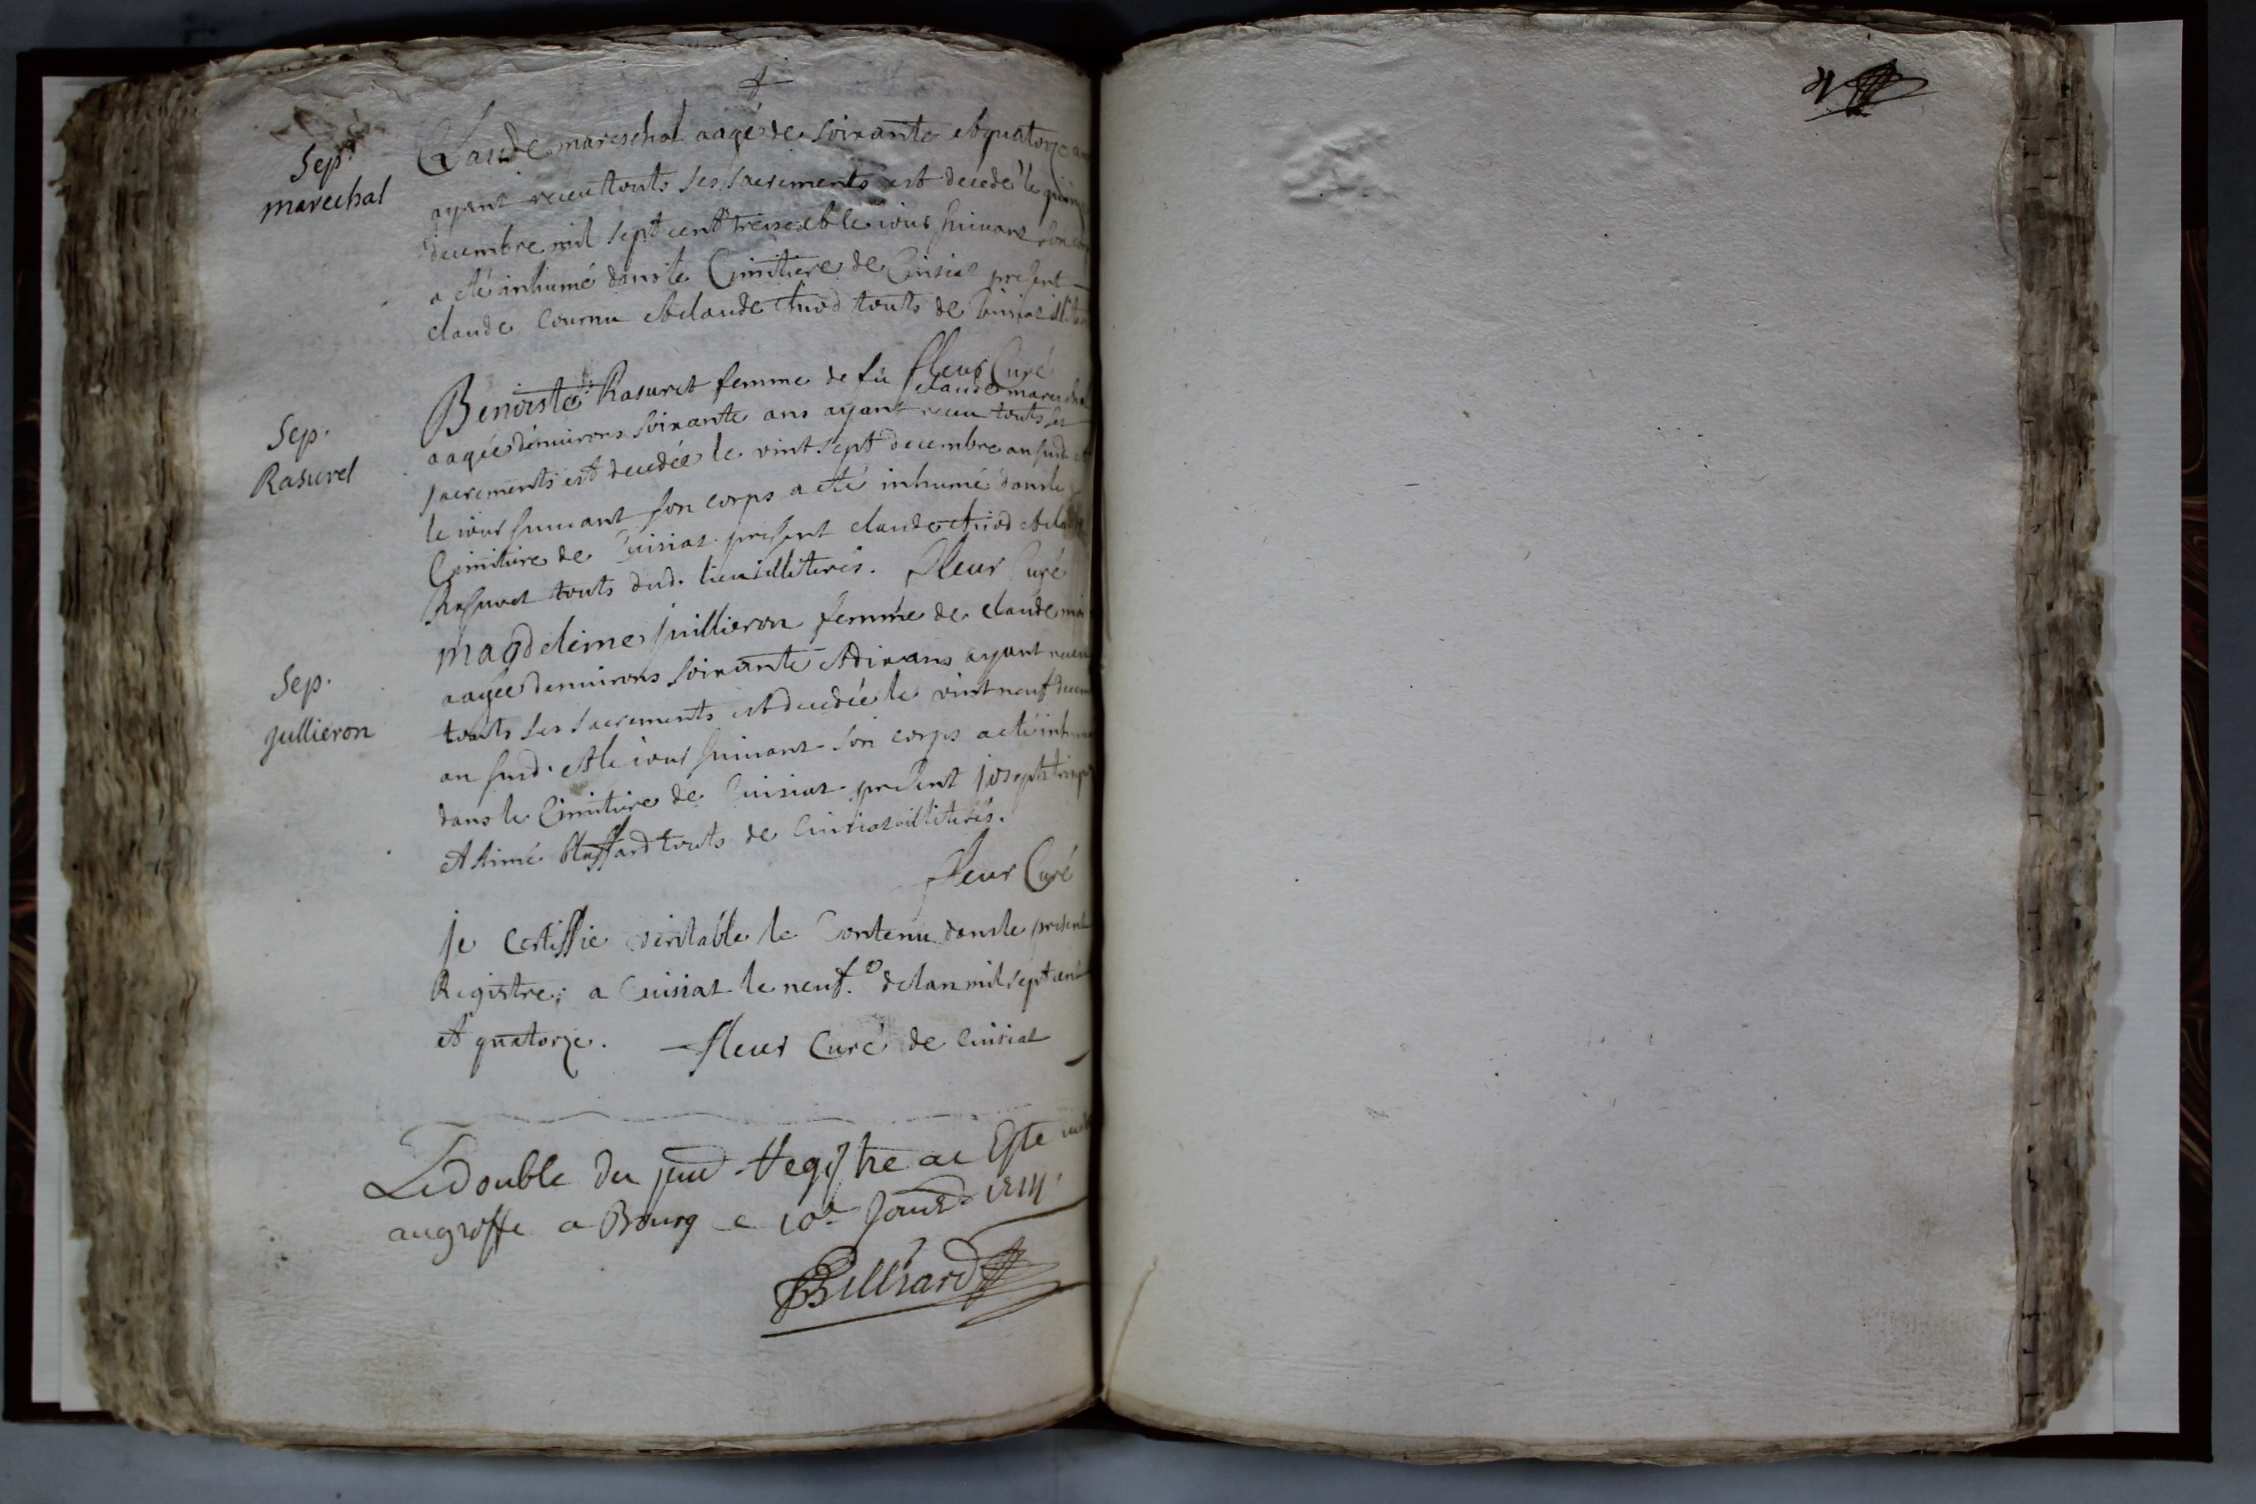 Sep.
marechal
Claude mareschal aagé de soixante et quatorze
ayant receu touts ses sacrements est decedé le
decembre mil sept cent treise et le iour suivant son
a eté inhumé dans le Cimitiere de Cuisiat present
claude cournu et claude chiod touts de Cuisiat
fleur Curé
Sep.
Rasurel
Benoiste Rasurel femme de fû claude mareschal
aagée d'environs soixante ans ayant receu touts ses
sacrements est decedée le vint sept decembre an susd. et
le iour suivant son corps a eté inhumé dans le
Cimitiere de Cuisiat present claude chiod et
Rasurel touts dud. lieu illiterés. fleur Curé
Sep.
jullieron
magdeleine juillieron femme de claude
aagée d'environs soixante et dix ans ayant receu
touts ses sacrements est decedée le vint neuf
an susd. et le iour suivant son corps a eté
dans le Cimitiere de Cuisiat present joseph
et Aimé touts de Cuisiat illiterés.
fleur Curé
je certiffie veritable le Contenu dans le present
Registre; a Cuisiat le neuf.e de lan mil sept cent
et quatorze. fleur Curé de Cuisiat
Le double du Regystre ae Este
au groffe a Bourg ce 10e
Billiard